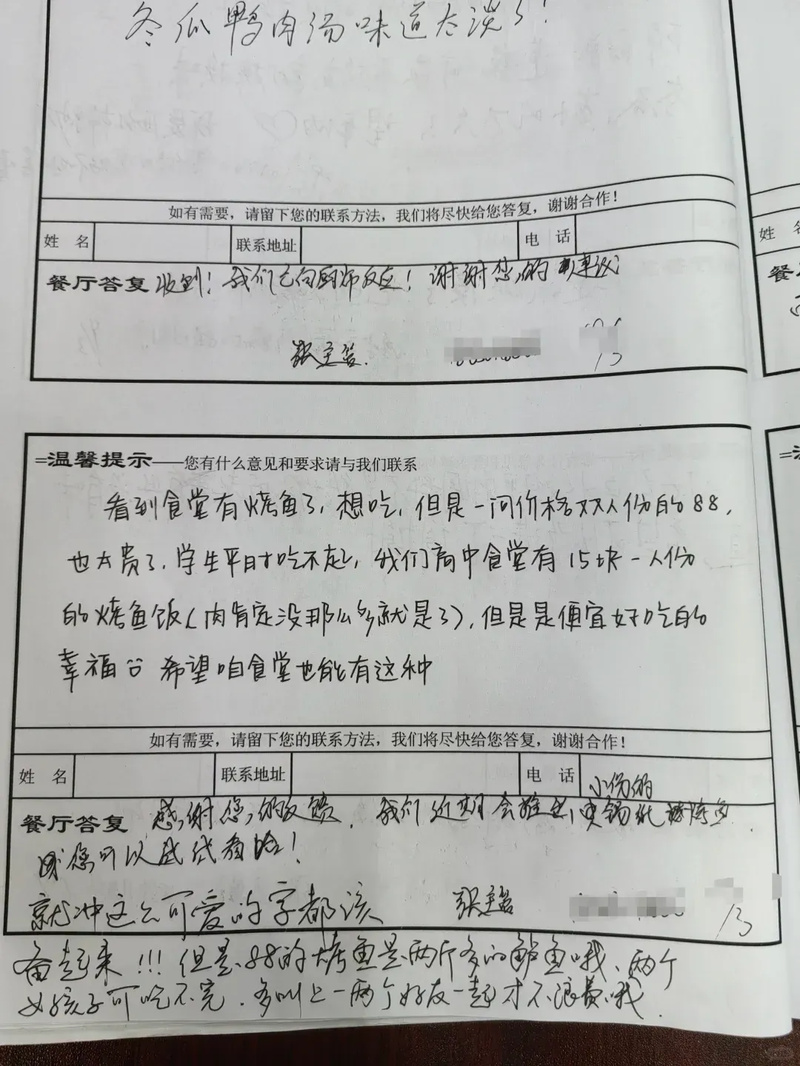 冬瓜鸭肉汤味道太淡了!
如有需要，请留下您的联系方法，我们将尽快给您答复，谢谢合作！
姓 名 联系地址 电 话
姓
餐厅答复 收到！我们已向厨师反应！谢谢您的建议
餐厅
=温馨提示——您有什么意见和要求请与我们联系
看到食堂有烤鱼了，想吃，但是一问价格双人份的88，
也太贵了，学生平时吃不起，我们高中食堂有15块一人份
的烤鱼饭（肉肯定没那么多就是了），但是是便宜好吃的
幸福 希望咱食堂也能有这种
如有需要，请留下您的联系方法，我们将尽快给您答复，谢谢合作！
姓 名 联系地址 电 话
小份的
餐厅答复 感谢您的反馈，我们近期会推出
就冲这么可爱的字都该
备起来!!!但是88的烤鱼是两斤多的鲈鱼哦、两个
女孩子可吃不完，多叫上一两个好友一起才不浪费哦